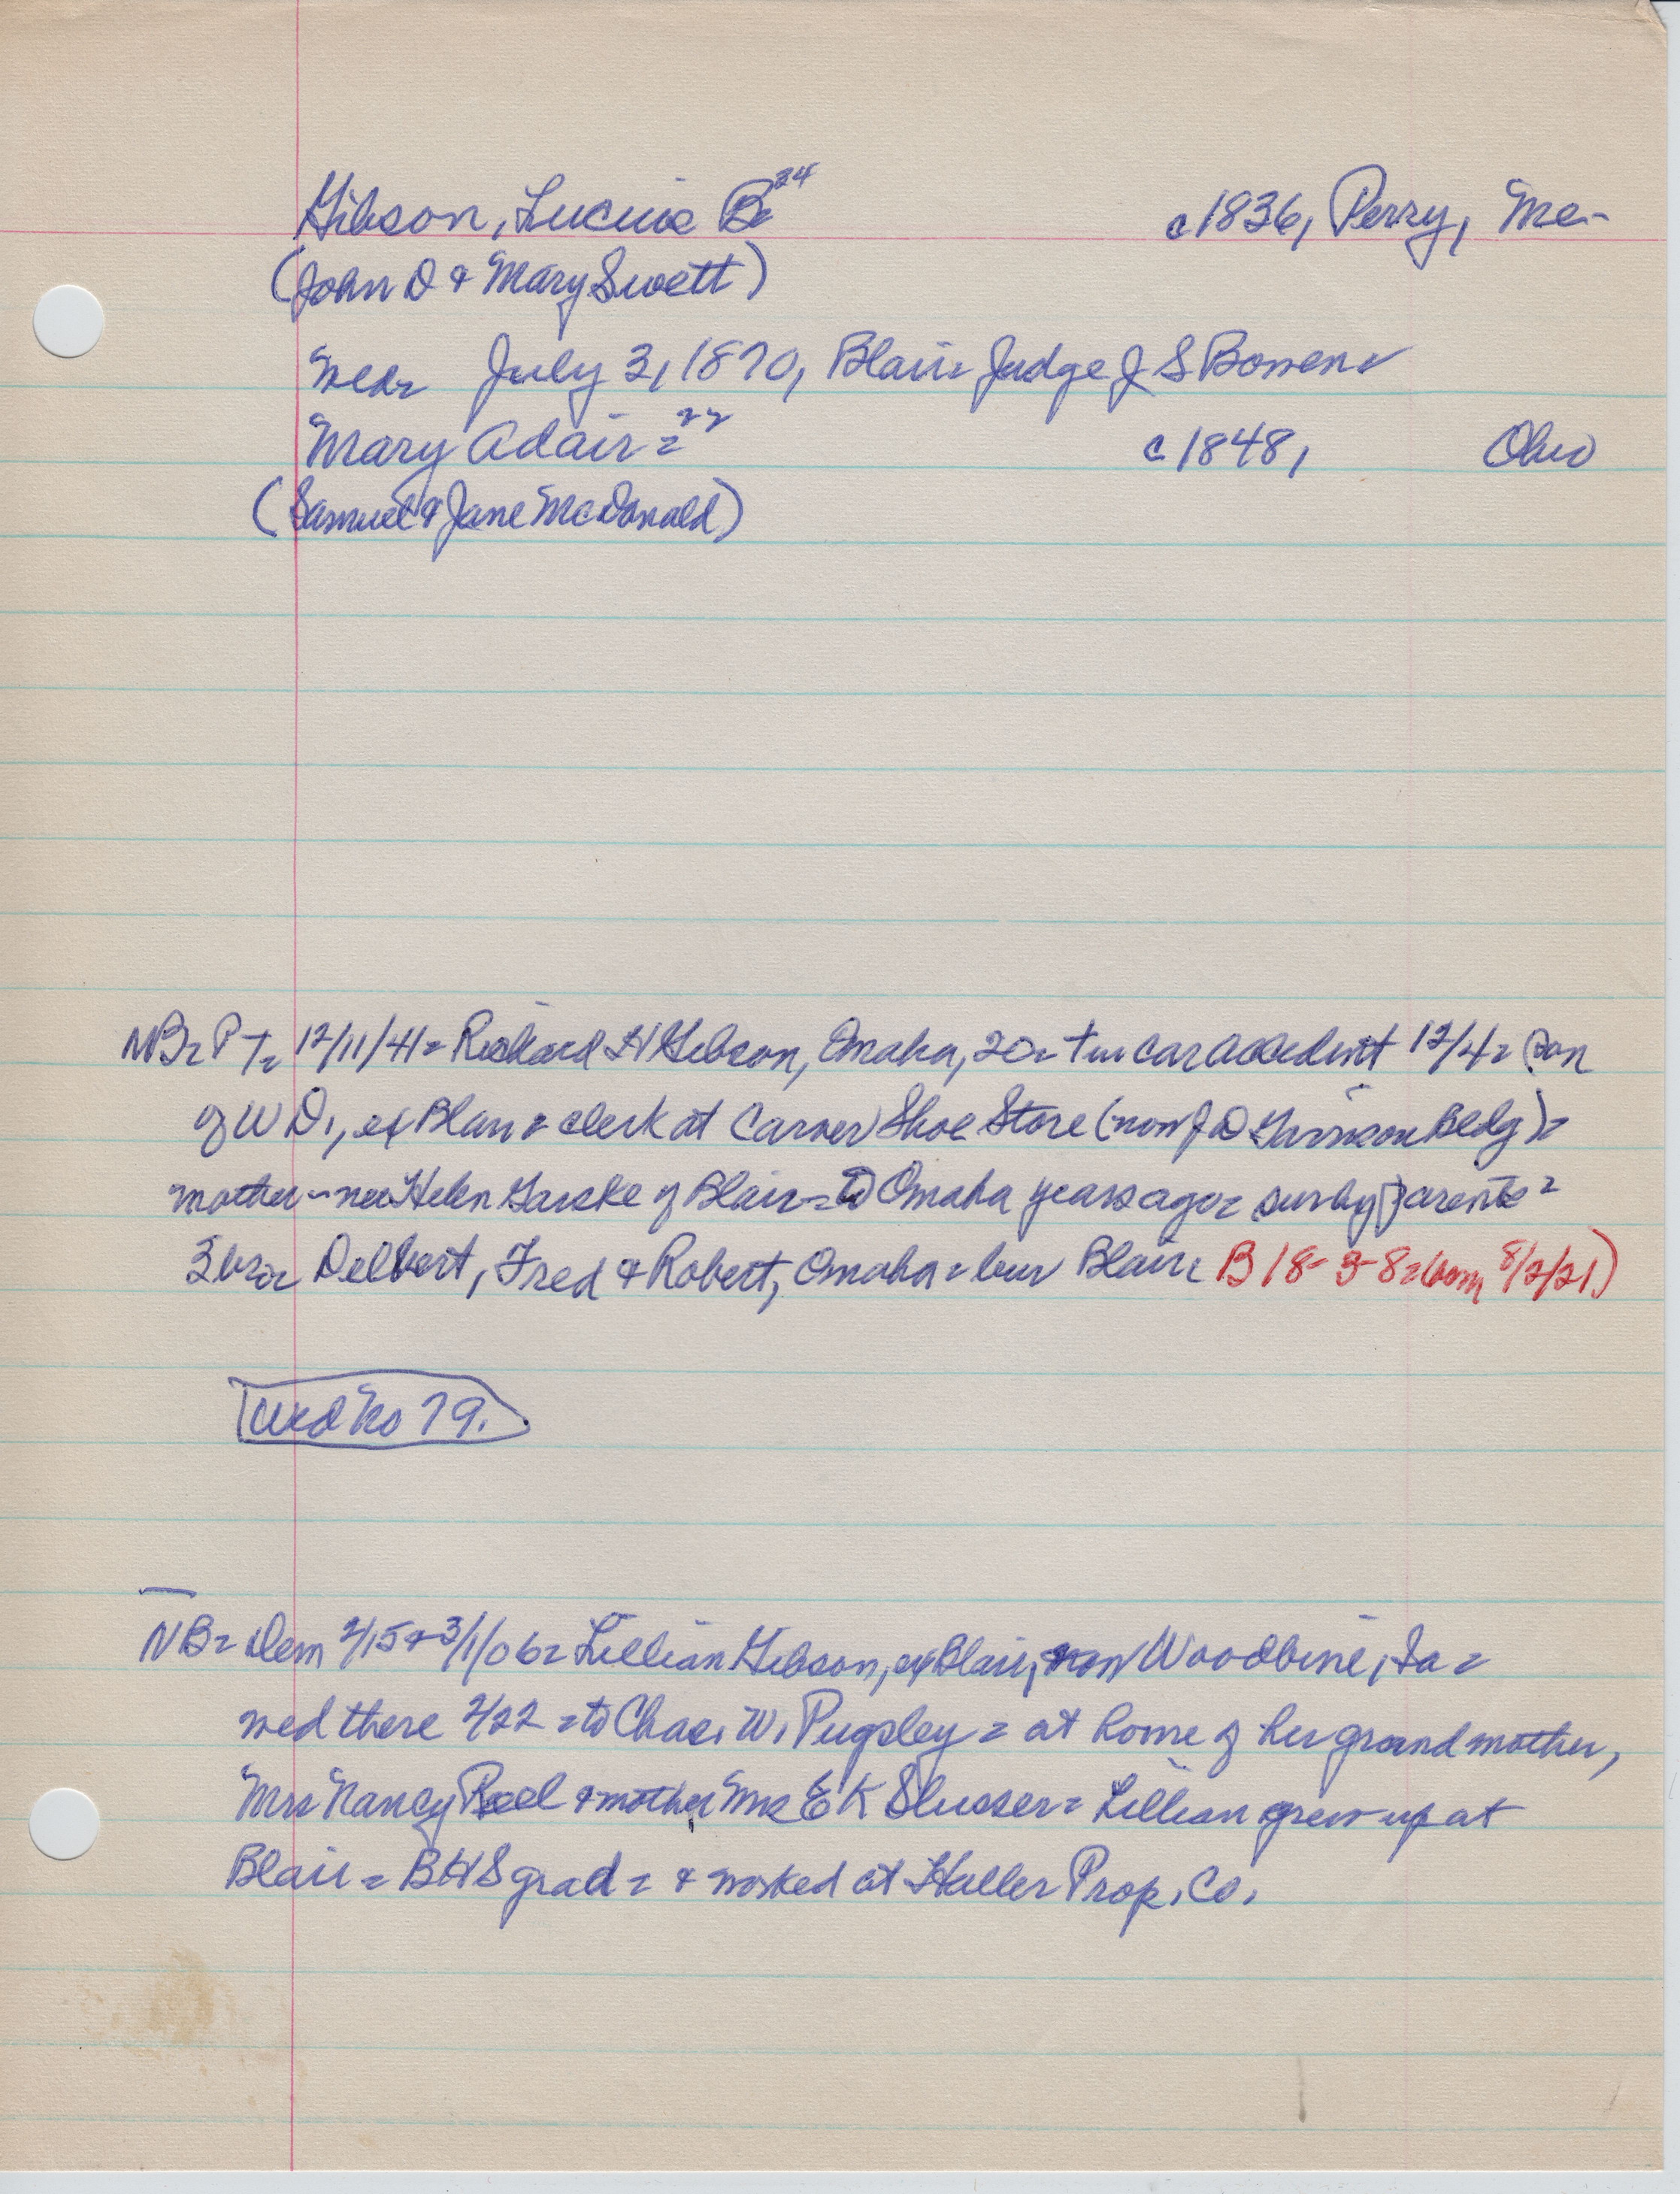 Gibson, Lucius B= 34 c1836, Perry, Me-
(John D & Mary Swett)
wed= July 3, 1870, Blair= Judge J S Bowen=
Mary Adair= 22 c1848, Ohio
(Samuel & Jane McDonald)
NB= PT= 12/11/41= Richard H Gibson, Omaha, 20= † in car accident 12/4= son
of W D, ex Blair & clerk at Carver Shoe Store (now J D Bldg)=
mother-nee Helen of Blair= to Omaha years ago= sur by parents=
3 bro= Delbert, Fred & Robert, Omaha= bur Blair= B 18-3-8=(born 8/2/21)
Wed No 79.
NB= Dem 2/15 & 3/1/06= Lillian Gibson, ex Blair, now Woodbine, Ia=
wed there 2/22= to Chas. W. Pugsley= at home of her grandmother,
Mrs Nancy & mother Mrs E K Slusser= Lillian grew up at
Blair= BHS grad= & worked at Haller Prop. Co.